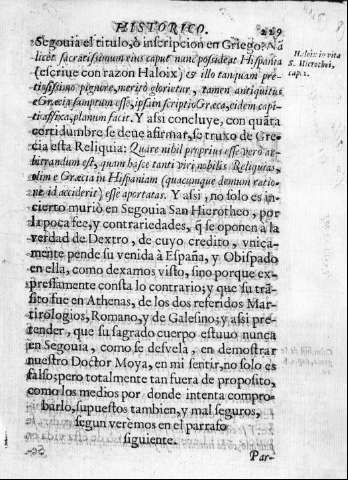 HISTORICO. 229
Segouia el titulo, ò inscripcion en Griego: Na
licet sacratissimum eius caput nunc possideat Hispania
(escriue con razon Haloix) & illo tanquam pre-
tiosissimo pignore, meritò glorietur, tamen antiquitus
e Græcia sumptum esse, ipsum scriptio Græca, eidem capi-
ti affixa, planum facit. Y assi concluye, con quãta
certidumbre se deue afirmar, se truxo de Gre-
cia esta Reliquia: Quare nihil proprius esse verò ar-
bitrandum est, quam hasce tanti viri nobilis Reliquias,
olim e Græcia in Hispaniam (quacumque demum ratio-
ne id acciderit) esse aportatas. Y assi, no solo es in-
cierto muriò en Segouia San Hierotheo, por
la poca fee, y contrariedades, q̃ se oponen a la
verdad de Dextro, de cuyo credito, vnica-
mente pende su venida à España, y Obispado
en ella, como dexamos visto, sino porque ex-
pressamente consta lo contrario; y que su trã-
sito fue en Athenas, de los dos referidos Mar-
tirologios, Romano, y de Galesino; y assi pre-
tender, que su sagrado cuerpo estuuo nunca
en Segouia, como se desvela, en demostrar
nuestro Doctor Moya, en mi sentir, no solo es
falso; pero totalmente tan fuera de proposito,
como los medios por donde intenta compro-
barlo, supuestos tambien, y mal seguros,
segun veremos en el parrafo
siguiente.
Par-
Haloix in vita
S. Hierothei,
cap. 2.